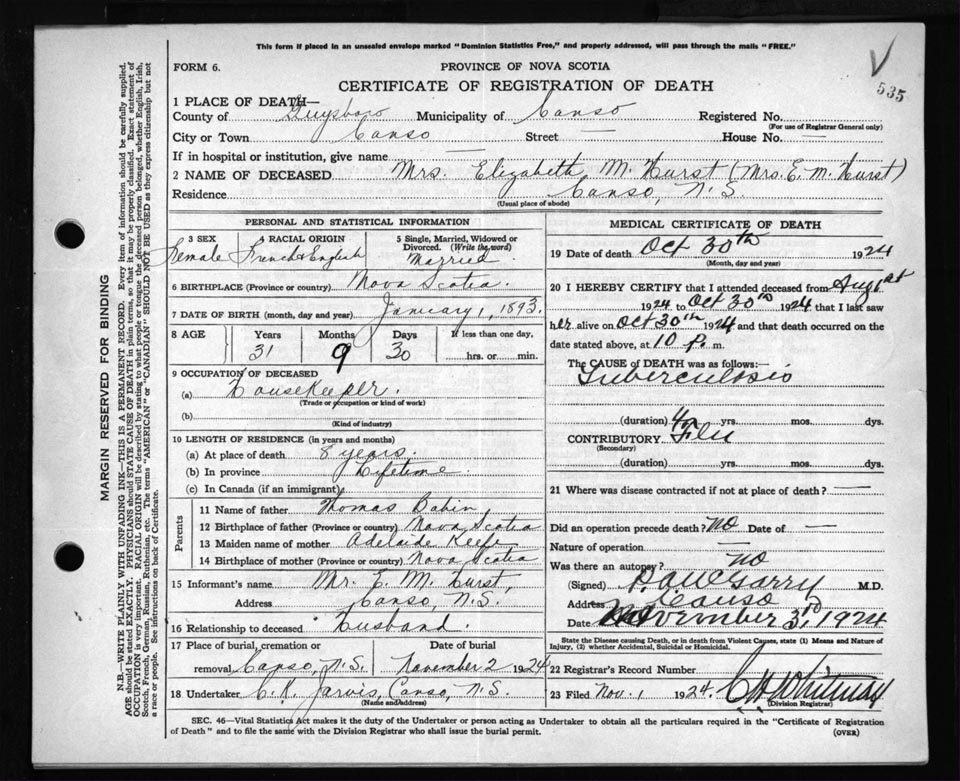 This form if placed in an unsealed envelope marked "Dominion Statistics Free," and properly addressed, will pass through the mails "FREE."
V
535
FORM 6.
PROVINCE OF NOVA SCOTIA
CERTIFICATE OF REGISTRATION OF DEATH
MARGIN RESERVED FOR BINDING
N.B.—WRITE PLAINLY WITH UNFADING INK—THIS IS A PERMANENT RECORD. Every item of information should be carefully supplied.
AGE should be stated EXACTLY. PHYSICIANS should STATE CAUSE OF DEATH in plain terms, so that it may be properly classified. Exact statement of
OCCUPATION is very important. RACIAL ORIGIN will be described by stating to what people or tongue the deceased person belonged, whether English, Irish,
Scotch, French, German, Russian, Ruthenian, etc. The terms "AMERICAN" or "CANADIAN" SHOULD NOT BE USED as they express citizenship but not
a race or people. See instructions on back of Certificate.
1 PLACE OF DEATH—
County of Guysboro Municipality of Canso Registered No.
(For use of Registrar General only)
City or Town Canso Street — House No. —
If in hospital or institution, give name —
2 NAME OF DECEASED Mrs. Elizabeth M. Hurst (Mrs. E. M. Hurst)
Residence Canso, N.S.
(Usual place of abode)
PERSONAL AND STATISTICAL INFORMATION
3 SEX
Female
4 RACIAL ORIGIN
French & English
5 Single, Married, Widowed or
Divorced. (Write the word)
Married
6 BIRTHPLACE (Province or country) Nova Scotia.
7 DATE OF BIRTH (month, day and year) January 1, 1893.
8 AGE
Years
31
Months
9
Days
30
If less than one day,
hrs. or min.
9 OCCUPATION OF DECEASED
(a) Housekeeper.
(Trade or occupation or kind of work)
(b)
(Kind of industry)
10 LENGTH OF RESIDENCE (in years and months)
(a) At place of death 8 years.
(b) In province Lifetime.
(c) In Canada (if an immigrant)
Parents
11 Name of father Thomas Babin
12 Birthplace of father (Province or country) Nova Scotia
13 Maiden name of mother Adelaide Keefe
14 Birthplace of mother (Province or country) Nova Scotia
15 Informant's name Mr. E. M. Hurst,
Address Canso, N.S.
16 Relationship to deceased Husband.
17 Place of burial, cremation or
removal Canso, N.S.
Date of burial
November 2 1924
18 Undertaker C. K. Jarvis, Canso, N.S.
(Name and address)
MEDICAL CERTIFICATE OF DEATH
19 Date of death Oct 30th 1924
(Month, day and year)
20 I HEREBY CERTIFY that I attended deceased from Aug 1st
1924 to Oct 30th 1924 that I last saw
her alive on Oct 30th 1924 and that death occurred on the
date stated above, at 10 P. m.
The CAUSE OF DEATH was as follows:
Tuberculosis
(duration) 4 yrs. mos. dys.
CONTRIBUTORY Flu
(Secondary)
(duration) yrs. mos. dys.
21 Where was disease contracted if not at place of death? —
Did an operation precede death? No Date of —
Nature of operation —
Was there an autopsy? no
(Signed) M.D.
Address Canso
Date November 3rd, 1924
State the Disease causing Death, or in death from Violent Causes, state (1) Means and Nature of
Injury, (2) whether Accidental, Suicidal or Homicidal.
22 Registrar's Record Number
23 Filed Nov. 1 1924.
(Division Registrar)
SEC. 46—Vital Statistics Act makes it the duty of the Undertaker or person acting as Undertaker to obtain all the particulars required in the "Certificate of Registration
of Death" and to file the same with the Division Registrar who shall issue the burial permit.
(OVER)